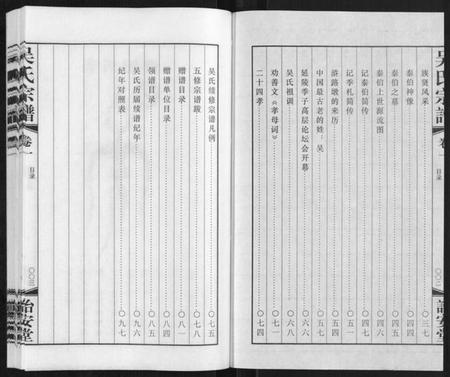 吴氏宗譜 卷一 目录 詒安堂
族贤风采 〇三七
泰伯神像 〇四四
泰伯之墓 〇四四
泰伯上世源流图
记泰伯简传
记季札简传
浒路墩的来历
中国最古老的姓:吴 〇五七
延陵季子高层论坛会开幕
吴氏祖训 〇六八
劝善文《孝母词》 〇七一
二十四孝 〇七四
吴氏续修宗谱凡例 〇七五
五修宗谱跋 〇七八
赠谱目录 〇八一
赠谱单位目录 〇八四
领谱目录 〇八五
吴氏历届续谱纪年 〇九六
纪年对照表 〇九七
吴氏宗譜 卷一 目录 詒安堂